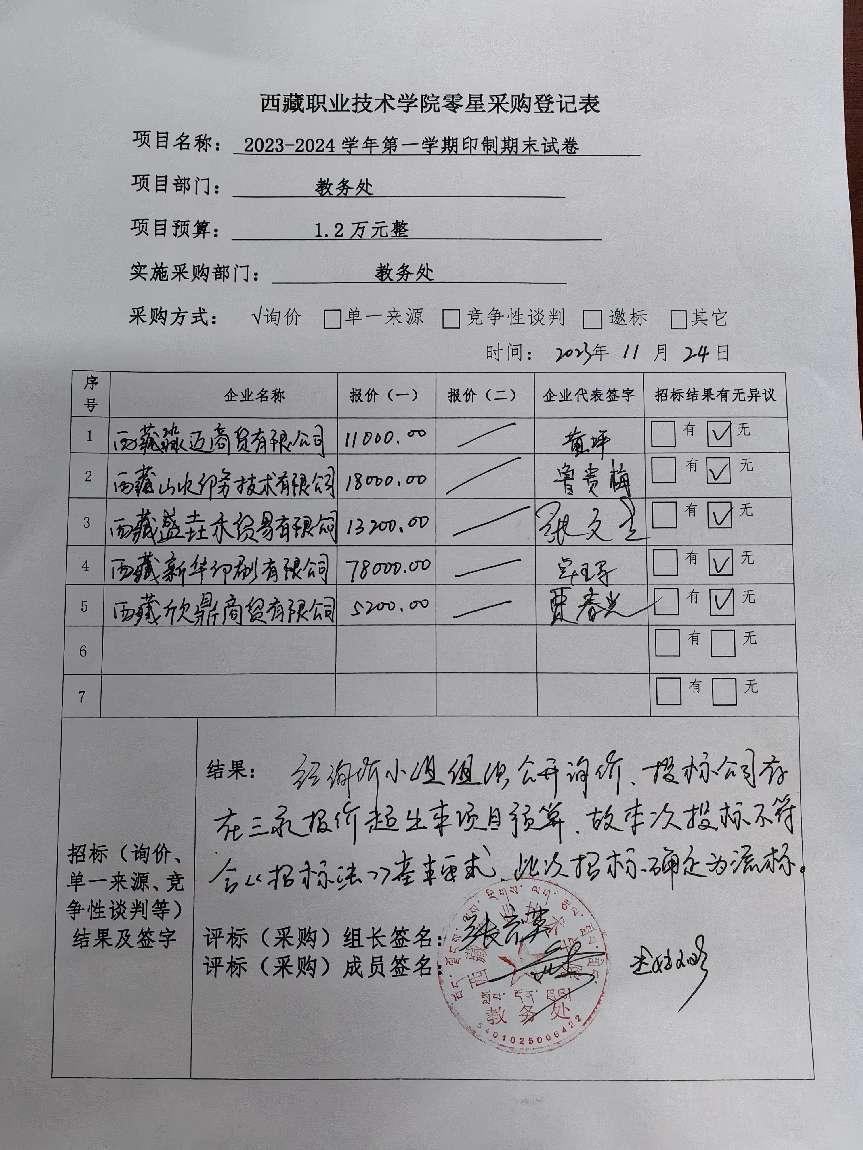 西藏职业技术学院零星采购登记表
项目名称: 2023-2024学年第一学期印制期末试卷
项目部门: 教务处
项目预算: 1.2万元整
实施采购部门: 教务处
采购方式: √询价 □单一来源 □竞争性谈判 □邀标 □其它
时间: 2023年 11 月 24日
序号 企业名称 报价(一) 报价(二) 企业代表签字 招标结果有无异议
1 西藏 迈商贸有限公司 11000.00 黄坪 □有 ☑无
2 西藏山水印务技术有限公司 18000.00 鲁贵梅 □有 ☑无
3 西藏盛垚禾贸易有限公司 13200.00 张文 □有 ☑无
4 西藏新华印刷有限公司 78000.00 □有 ☑无
5 西藏欣鼎商贸有限公司 5200.00 贾春 □有 ☑无
6 □有 □无
7 □有 □无
招标(询价、单一来源、竞争性谈判等)结果及签字
结果: 经询价小组组织公开询价、投标公司存
在三家报价超出本项目预算、故本次投标不符
合《招标法》基本要求、此次招标确定为流标。
评标(采购)组长签名:
评标(采购)成员签名:
教务处
5401025006422